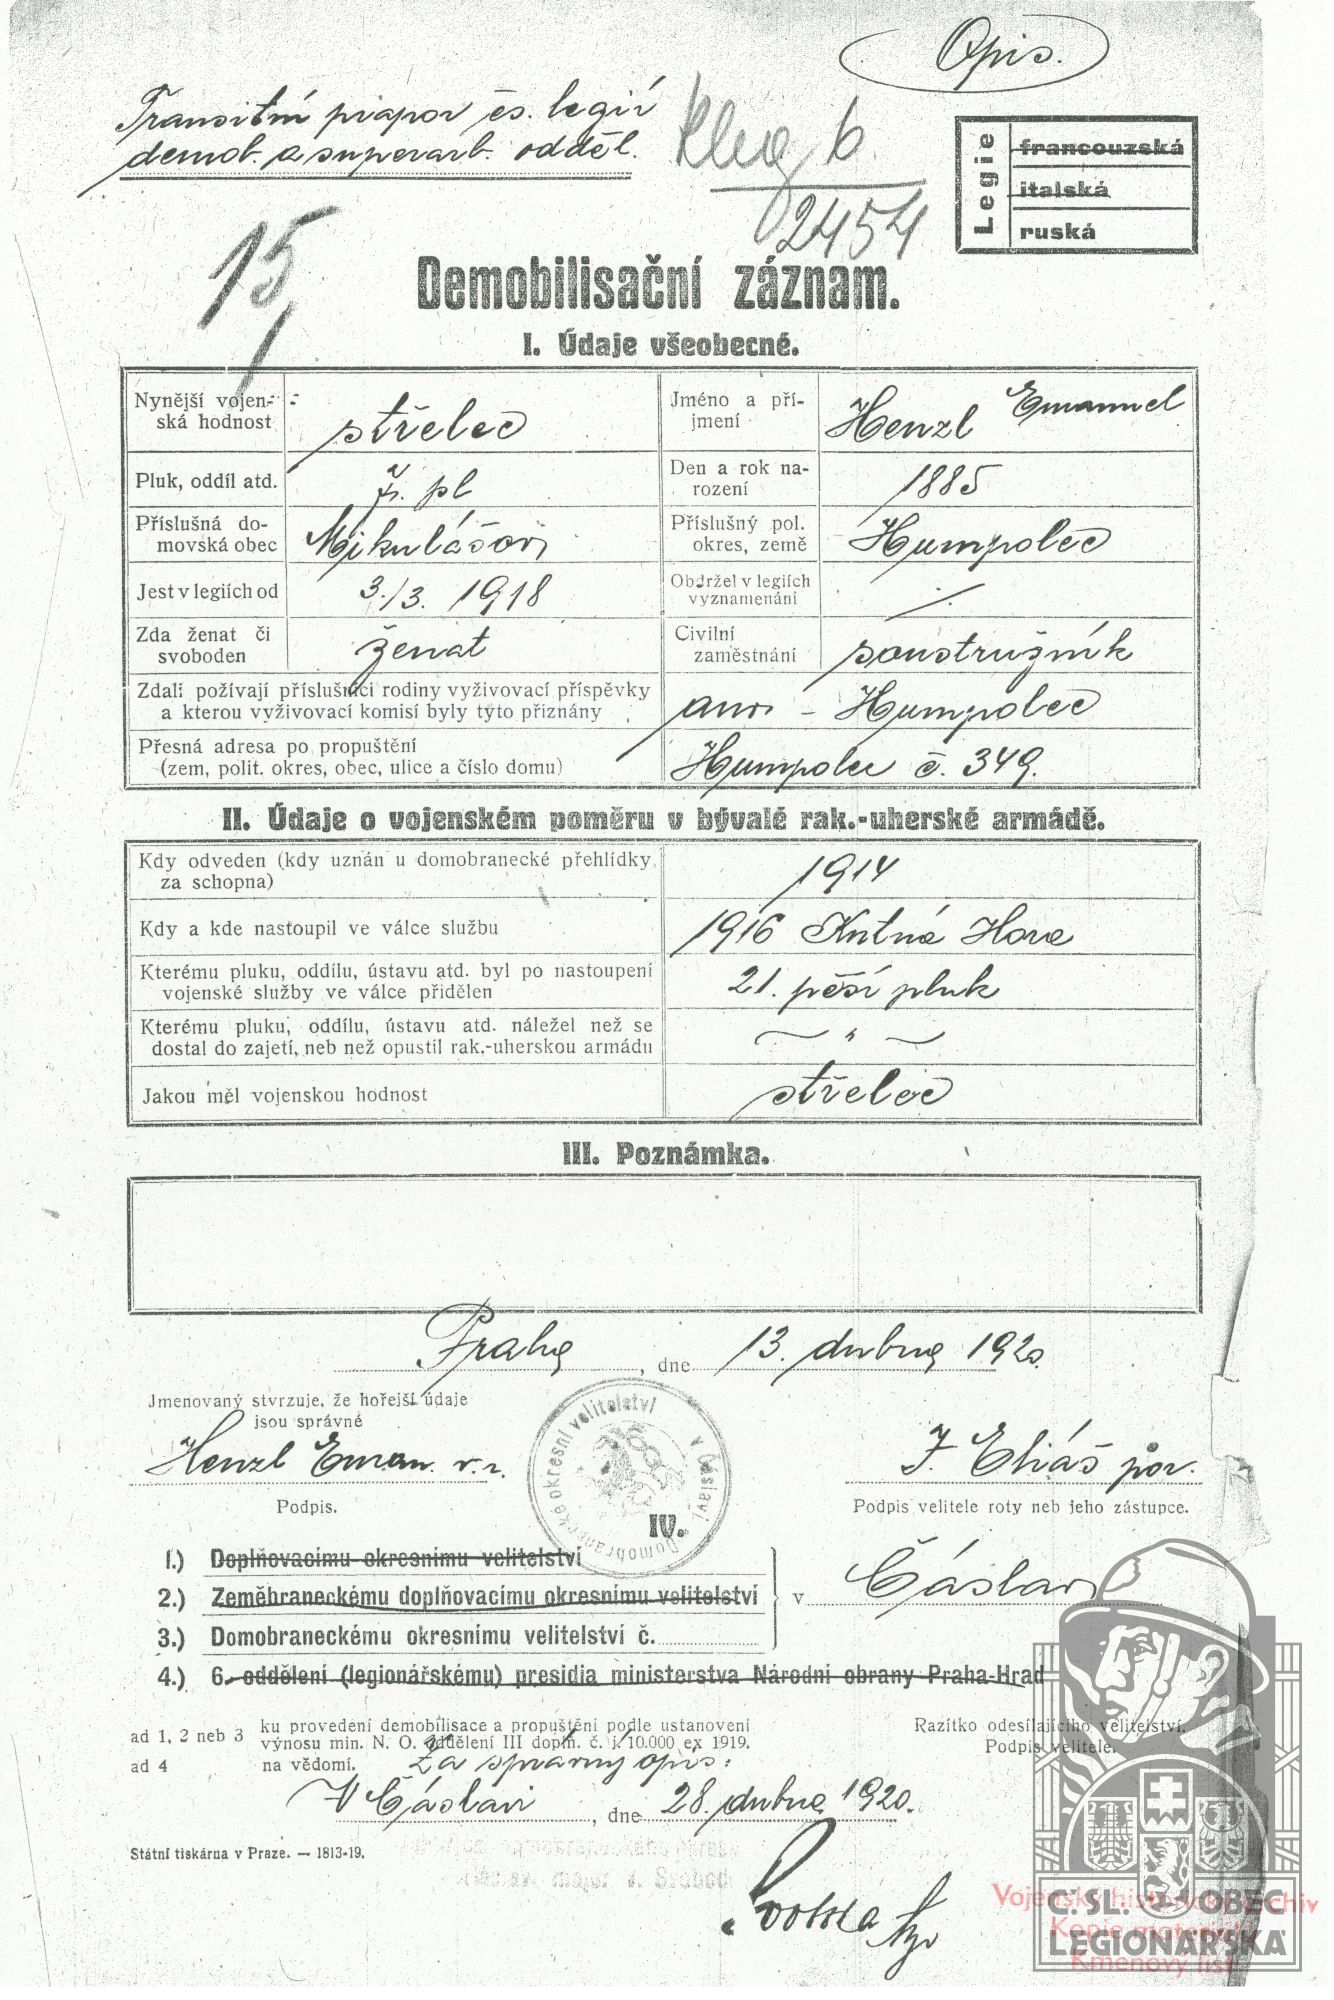 Opis.
Transitní prapor čs. legií
demob. a superarb. odděl.
6.
2454
15/1
Legie
francouzská
italská
ruská
Demobilisační záznam.
I. Údaje všeobecné.
Nynější vojen-
ská hodnost
střelec
Jméno a pří-
jmení
Henzl Emanuel
Pluk, oddíl atd.
ž. pl
Den a rok na-
rození
1885
Příslušná do-
movská obec
Mikulášov
Příslušný pol.
okres, země
Humpolec
Jest v legiích od
3./3. 1918
Obdržel v legiích
vyznamenání
Zda ženat či
svoboden
ženat
Civilní
zaměstnání
soustružník
Zdali požívají příslušníci rodiny vyživovací příspěvky
a kterou vyživovací komisí byly tyto přiznány
ano - Humpolec
Přesná adresa po propuštění
(zem, polit. okres, obec, ulice a číslo domu)
Humpolec č. 349.
II. Údaje o vojenském poměru v bývalé rak.-uherské armádě.
Kdy odveden (kdy uznán u domobranecké přehlídky
za schopna)
1914
Kdy a kde nastoupil ve válce službu
1916 Kutná Hora
Kterému pluku, oddílu, ústavu atd. byl po nastoupení
vojenské služby ve válce přidělen
21. pěší pluk
Kterému pluku, oddílu, ústavu atd. náležel než se
dostal do zajetí, neb než opustil rak.-uherskou armádu
— " —
Jakou měl vojenskou hodnost
střelec
III. Poznámka.
Praha, dne 13. dubna 1920.
Jmenovaný stvrzuje, že hořejší údaje
jsou správné
Henzl Eman. v. r.
Podpis.
Domobranecké okresní velitelství v Čáslavi
J. Eliáš por.
Podpis velitele roty neb jeho zástupce.
IV.
1.) Doplňovacímu okresnímu velitelství
2.) Zeměbraneckému doplňovacímu okresnímu velitelství
3.) Domobraneckému okresnímu velitelství č.
v Čáslavi
4.) 6. oddělení (legionářskému) presidia ministerstva Národní obrany Praha-Hrad
ad 1, 2 neb 3 ku provedení demobilisace a propuštění podle ustanovení
výnosu min. N. O. oddělení III doplň. č. j. 10.000 ex 1919.
ad 4 na vědomí.
Razítko odesílajícího velitelství.
Podpis velitele.
Za správný opis:
V Čáslavi, dne 28. dubna 1920.
Státní tiskárna v Praze. — 1813-19.
major v. Svobod
Vojenský historický archiv
Kopie materiálu
Kmenový list
Č.SL. OBEC
LEGIONÁŘSKÁ